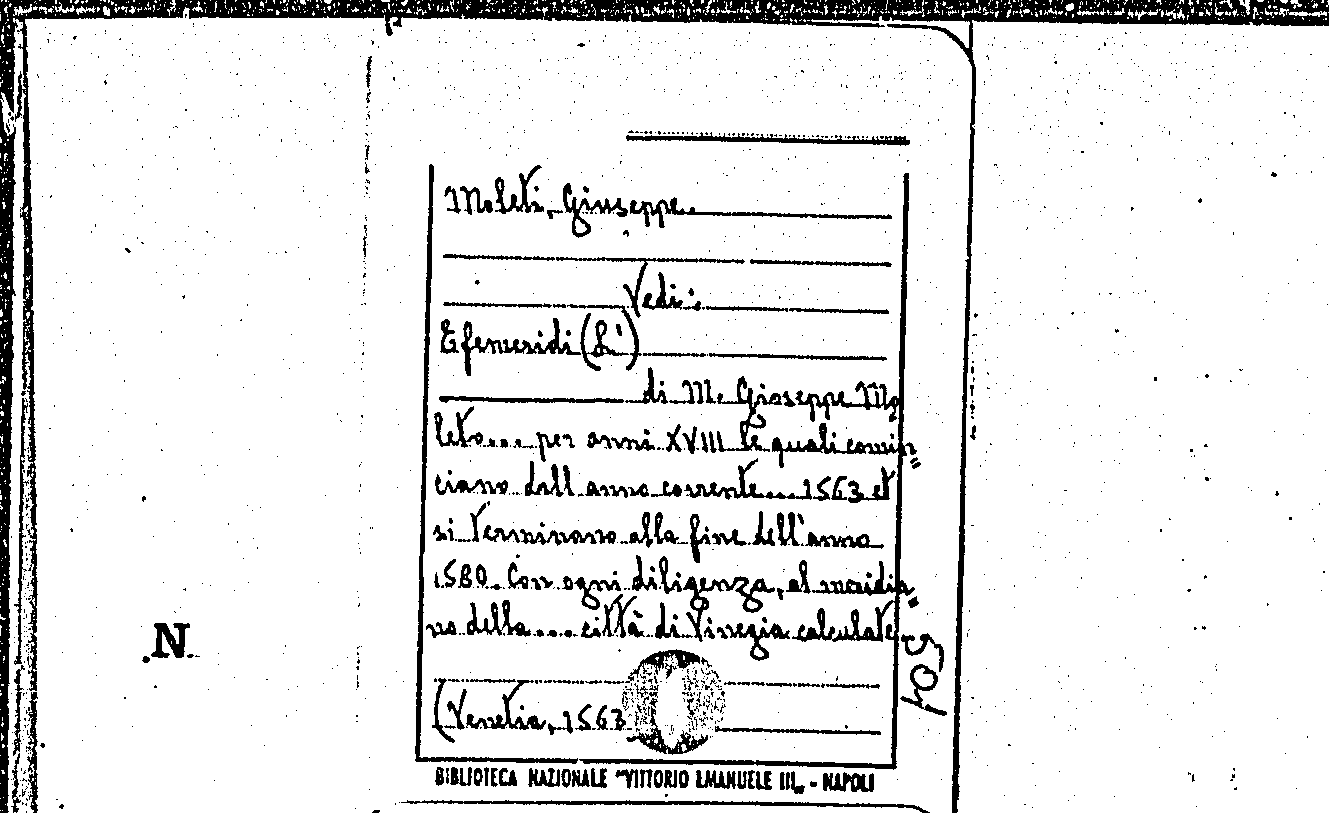 Moleti, Giuseppe.
Vedi:
Efemeridi (Li)
di M. Giuseppe Mo
leto... per anni XVIII le quali comin„
ciano dall anno corrente... 1563 et
si terminano alla fine dell'anno
1580. Con ogni diligenza, al meridia„
no della... città di Vinegia calculate.
(Venetia, 1563
504
N
BIBLIOTECA NAZIONALE "VITTORIO EMANUELE III„ - NAPOLI